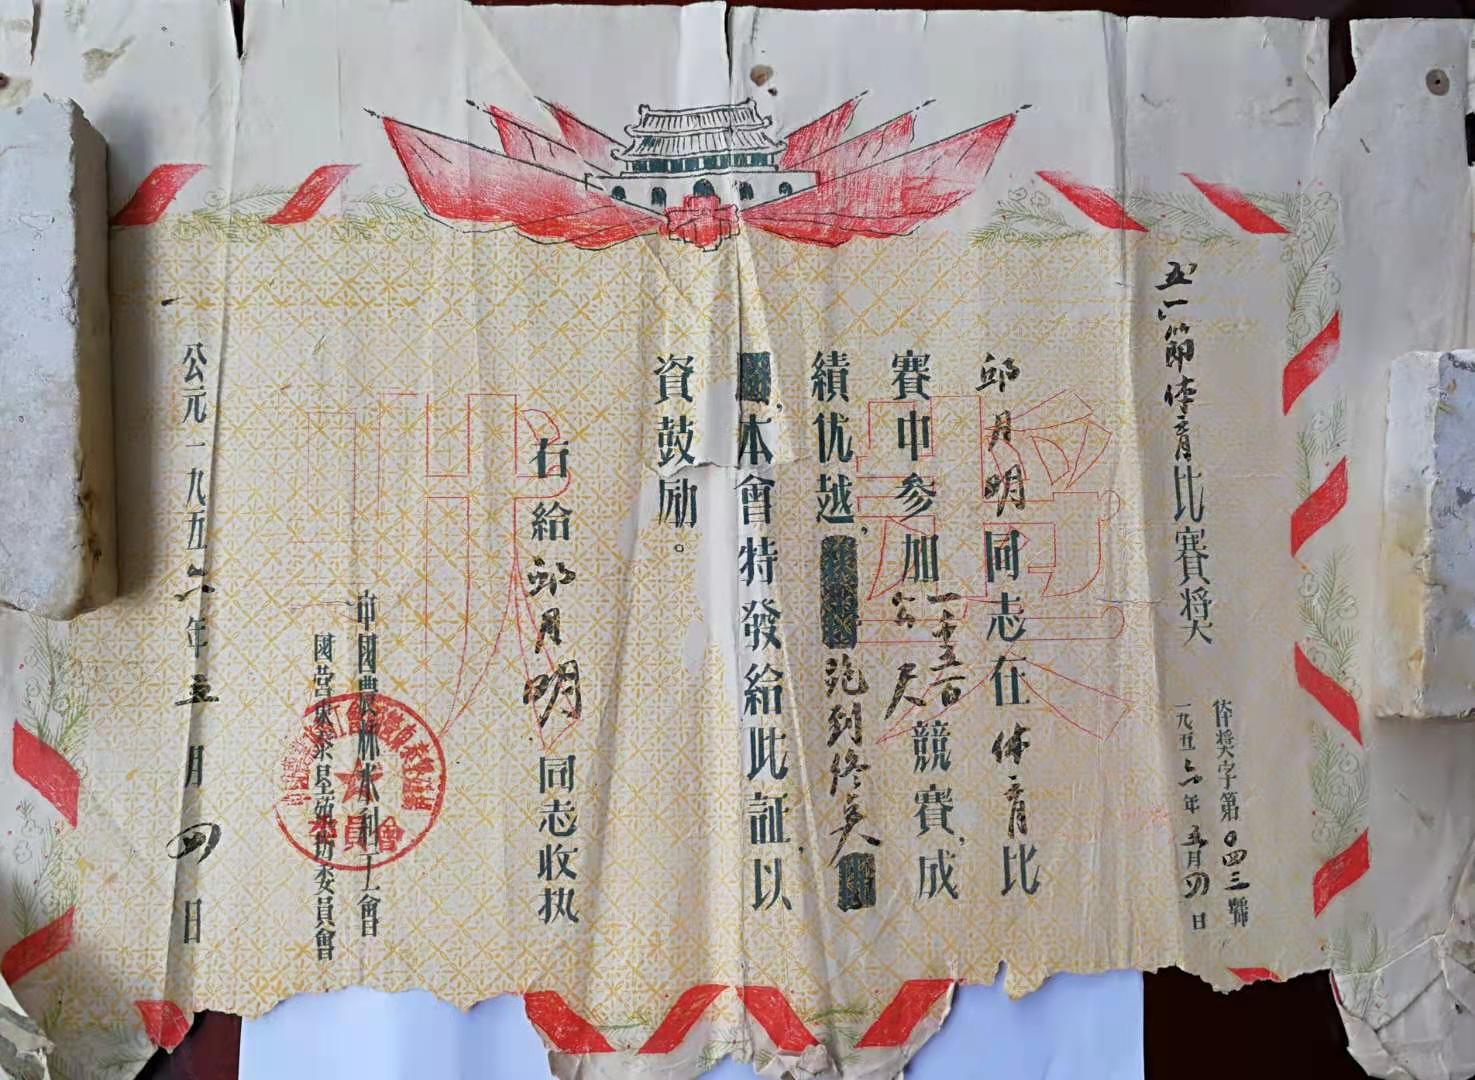 五一節体育比賽奖
体奬字第〇四三號
一九五六年五月四日
邱月明同志在体育比
賽中参加一千五百公尺競賽，成
績优越，跑到终点
，本會特發給此証，以
資鼓励。
右給邱月明同志收执
中國農林水利工會
國營東泰墾殖場委員會
公元一九五六年五月四日
奬状
委員會